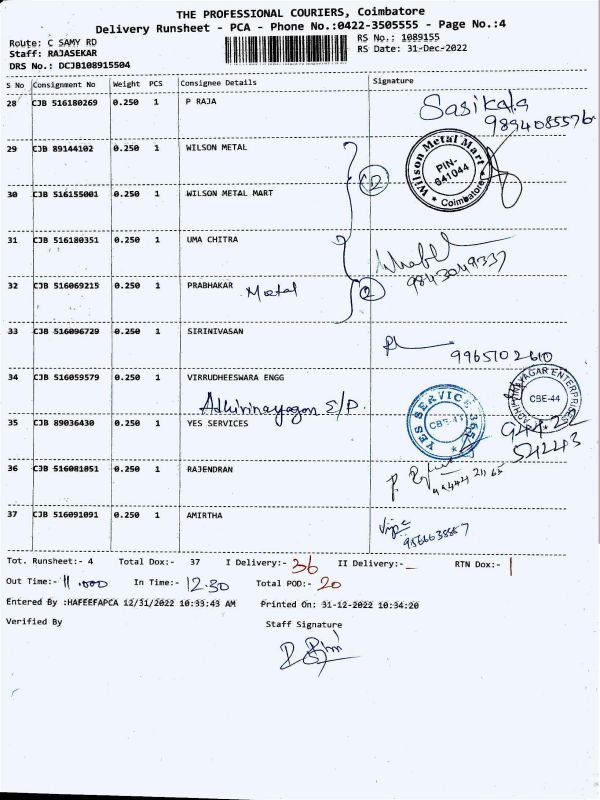 THE PROFESSIONAL COURIERS, Coimbatore
Delivery Runsheet - PCA - Phone No.:0422-3505555 - Page No.:4
Route: C SAMY RD
RS No.: 1089155
Staff: RAJASEKAR
RS Date: 31-Dec-2022
DRS No.: DCJB108915504
S No Consignment No Weight PCS Consignee Details Signature
28 CJB 516180269 0.250 1 P RAJA Sasikala
9894085576
29 CJB 89144102 0.250 1 WILSON METAL
Wilson Metal Mart PIN- 641044 Coimbatore
30 CJB 516155001 0.250 1 WILSON METAL MART
31 CJB 516180351 0.250 1 UMA CHITRA
32 CJB 516069215 0.250 1 PRABHAKAR Metal 9843049337
33 CJB 516096729 0.250 1 SIRINIVASAN
9965102610
34 CJB 516059579 0.250 1 VIRRUDHEESWARA ENGG
YES SERVICE 365 CBE-47
ADHIVINAYAGAR ENTERPRISES CBE-44
35 CJB 89036430 0.250 1 YES SERVICES
54243
36 CJB 516081051 0.250 1 RAJENDRAN
37 CJB 516091091 0.250 1 AMIRTHA
Tot. Runsheet:- 4 Total Dox:- 37 I Delivery:- 36 II Delivery:- - RTN Dox:- 1
Out Time:- 11.000 In Time:- 12.30 Total POD:- 20
Entered By :HAFEEFAPCA 12/31/2022 10:33:43 AM Printed On: 31-12-2022 10:34:20
Verified By Staff Signature